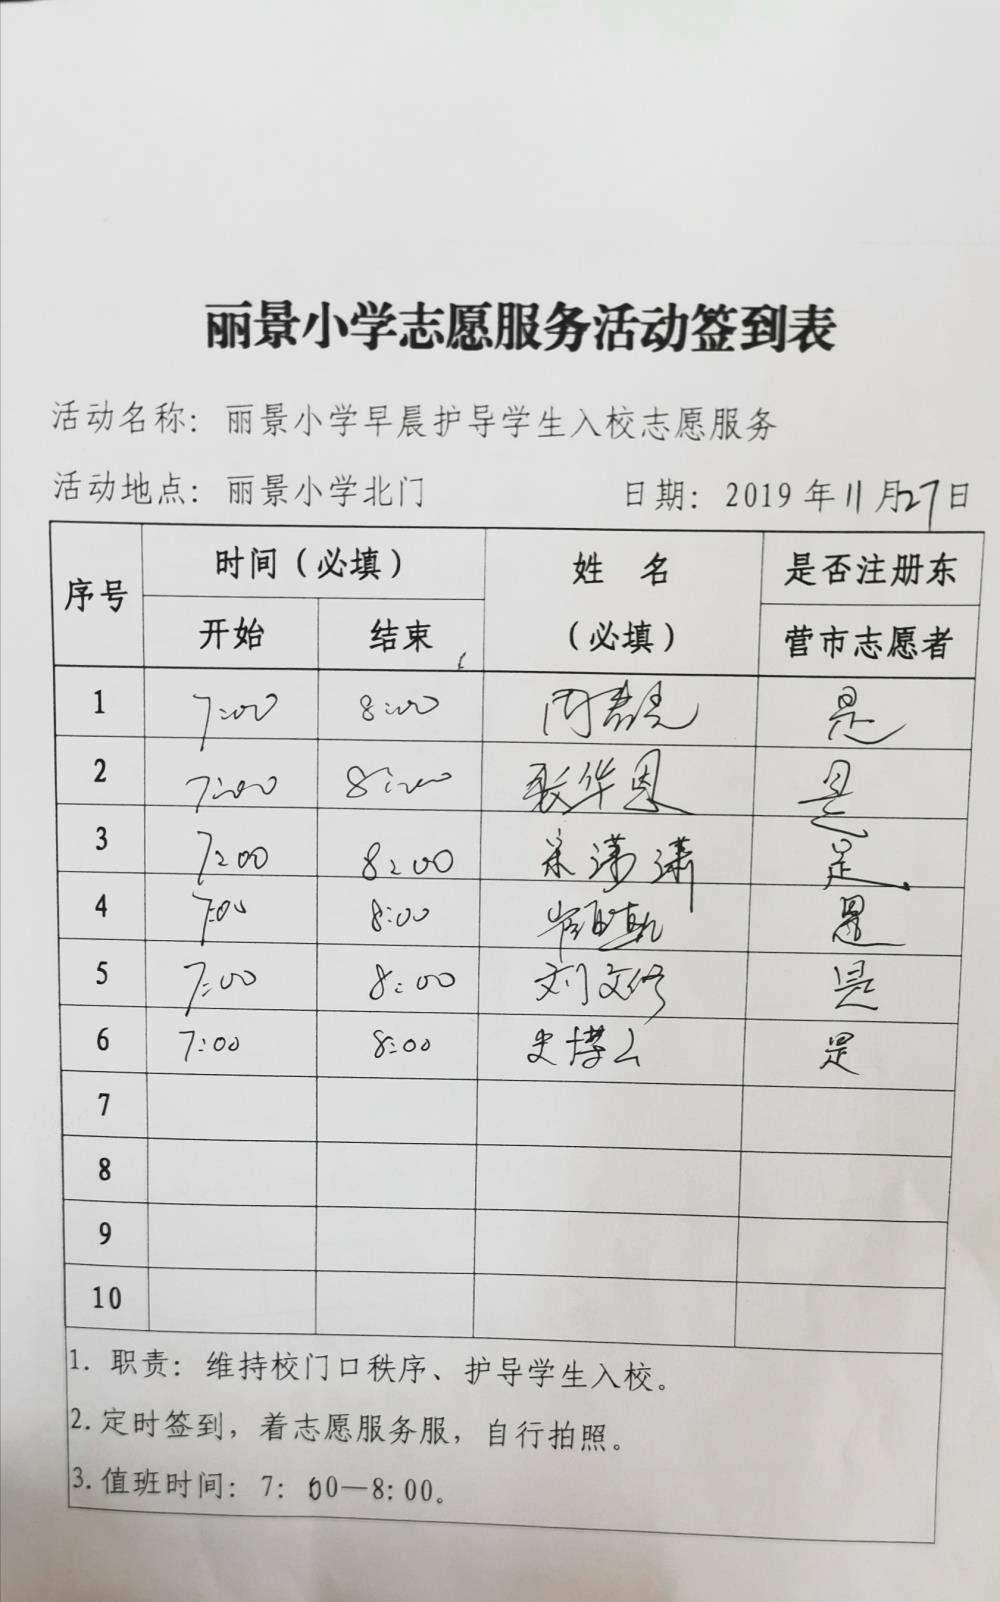 丽景小学志愿服务活动签到表
活动名称：丽景小学早晨护导学生入校志愿服务
活动地点：丽景小学北门 日期：2019年11月27日
序号 时间（必填） 姓名（必填） 是否注册东营市志愿者
开始 结束
1 7:00 8:00 是
2 7:00 8:00 张华恩 是
3 7:00 8:00 宋潇潇 是
4 7:00 8:00 是
5 7:00 8:00 刘文修 是
6 7:00 8:00 史博 是
7
8
9
10
1. 职责：维持校门口秩序、护导学生入校。
2. 定时签到，着志愿服务服，自行拍照。
3. 值班时间：7：00—8：00。